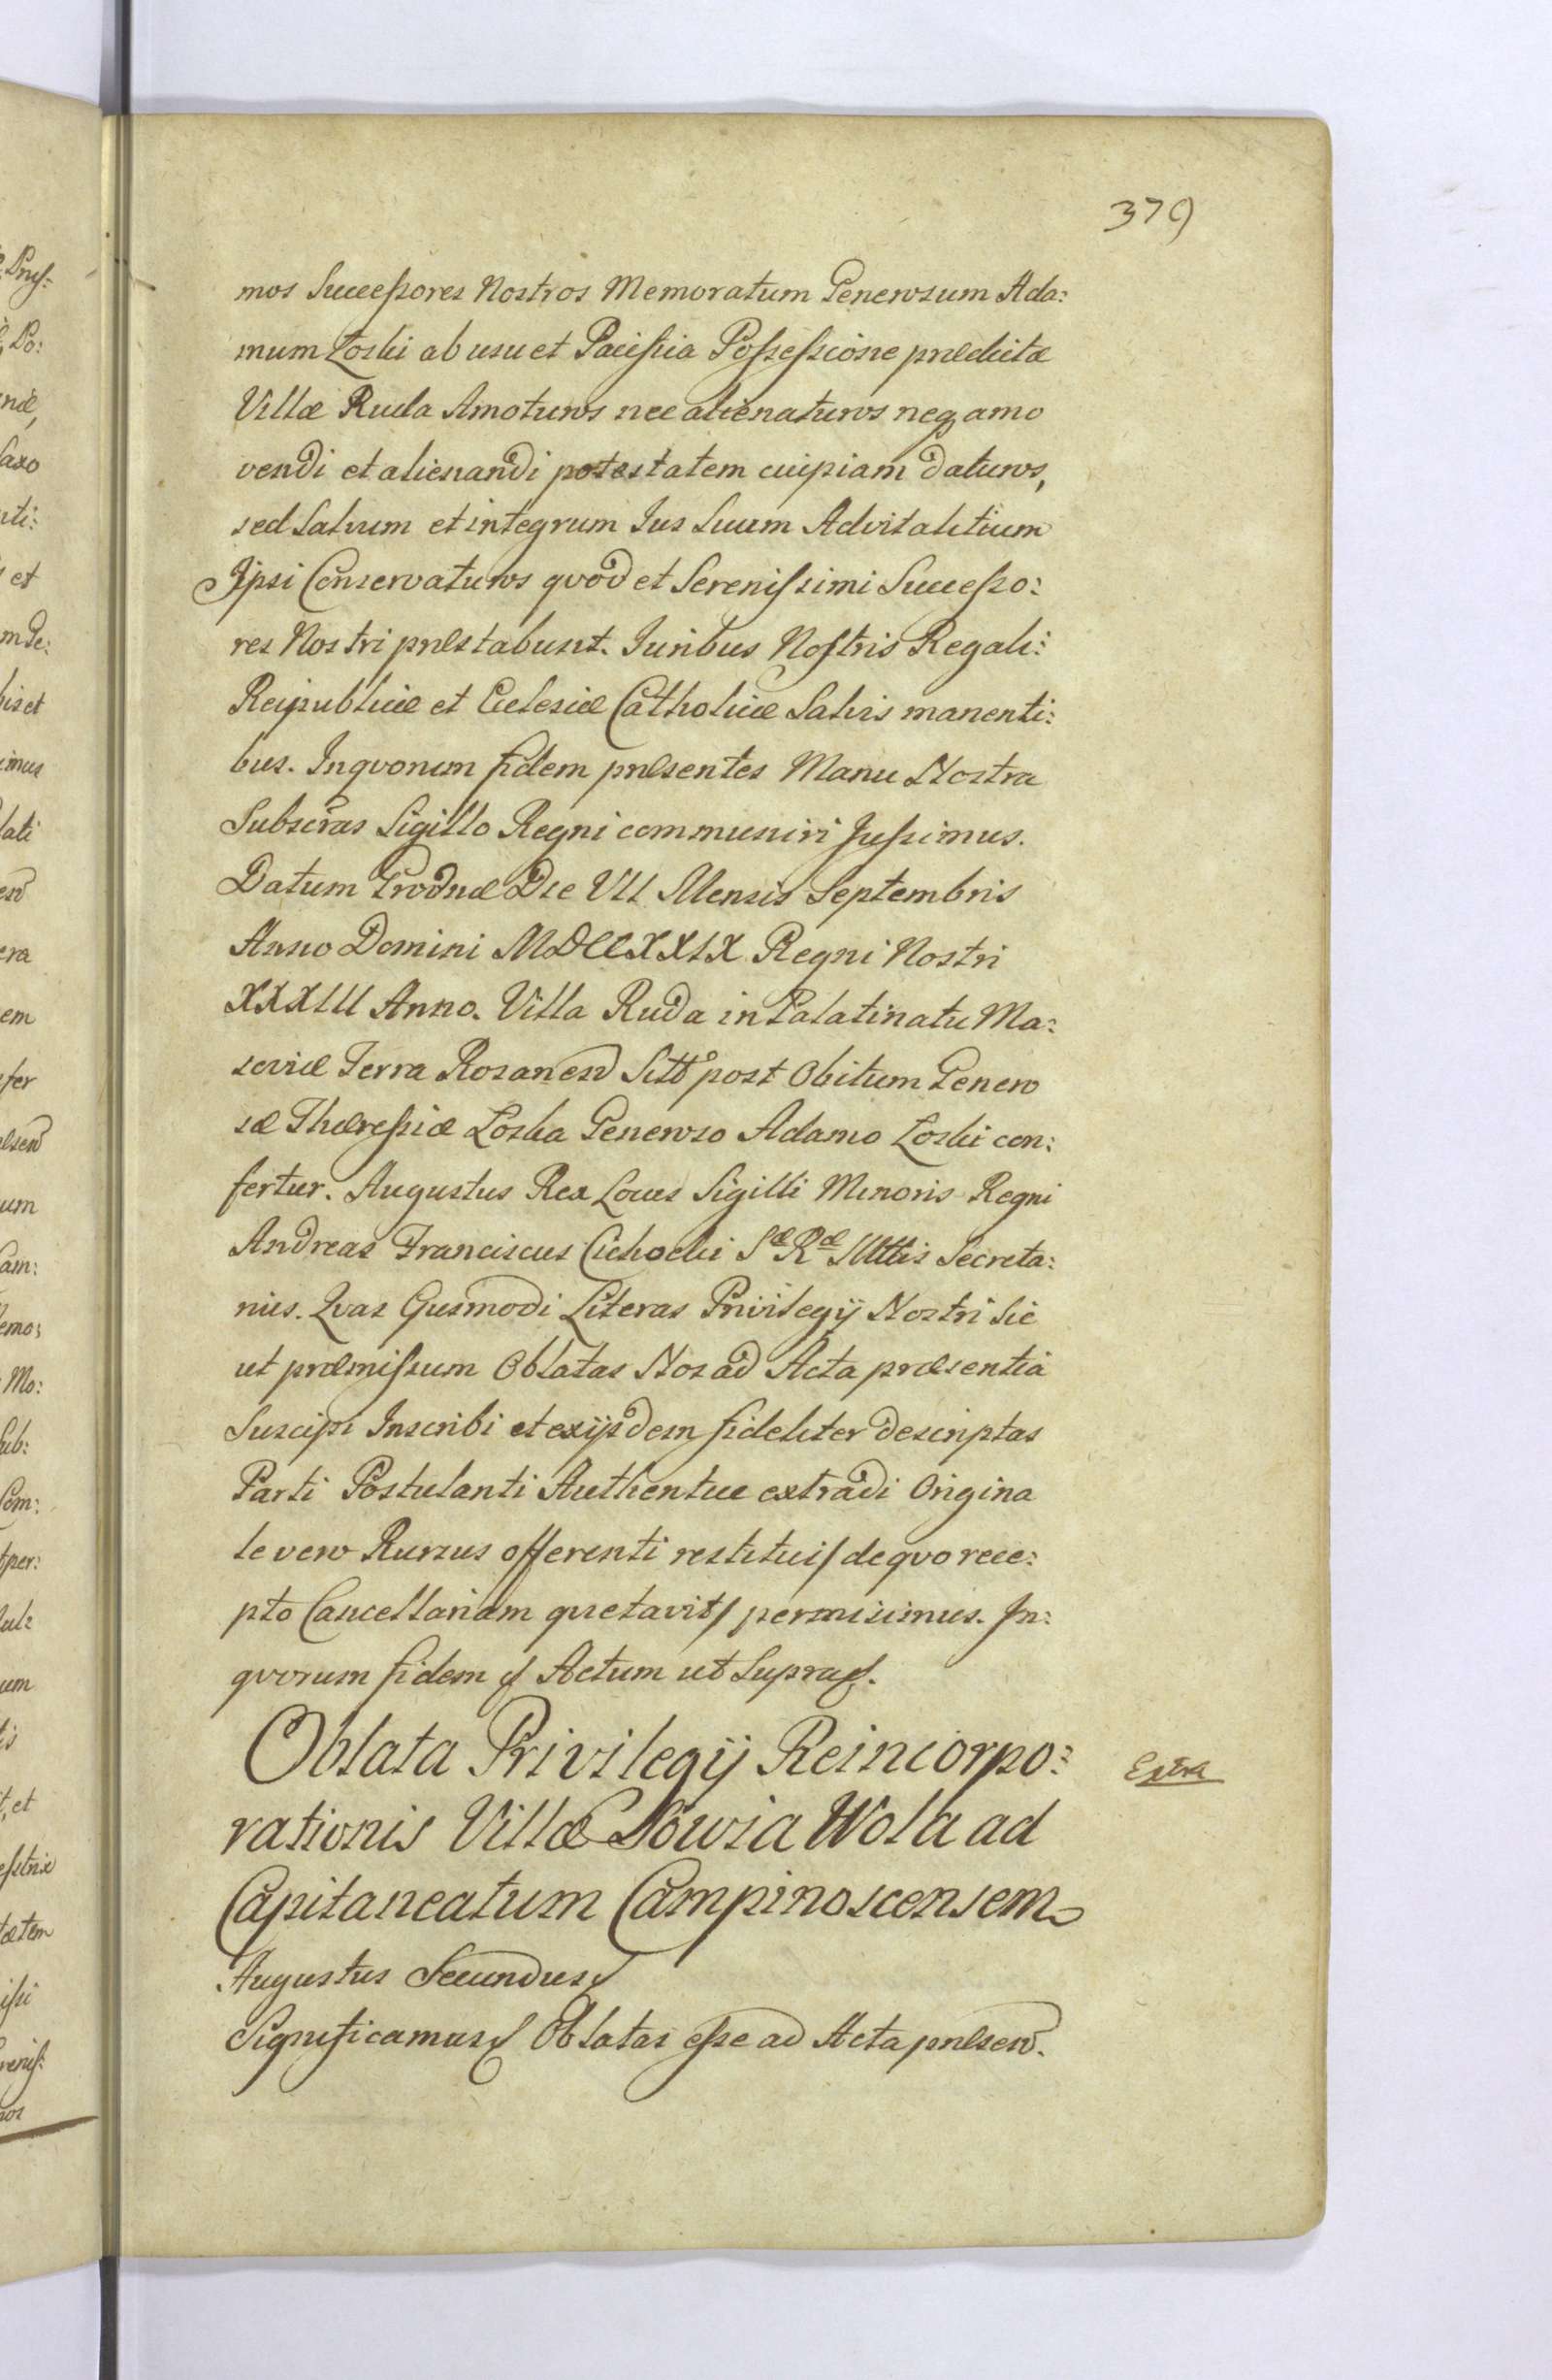 379
mos Successores Nostros Memoratum Generosum Ada:
mum Łoski ab usu et Pacifica Possessione prædictæ
Villæ Ruda Amoturos nec alienaturos neq amo
vendi et alienandi potestatem cuipiam daturos,
sed Salvum et integrum Jus Suum Advitalitium
Ipsi Conservaturos qvod et Serenissimi Successo:
res Nostri præstabunt. Juribus Nostris Regali:
Reipublicæ et Eclesiæ Catholicæ Salvis manenti:
bus. In qvorum fidem præsentes Manu Nostra
Subscras Sigillo Regni communiri Jussimus.
Datum Grodnæ Die VII Mensis Septembris
Anno Domini MDCCXXIX Regni Nostri
XXXIII Anno. Villa Ruda in Palatinatu Ma:
soviæ Terra Rosanen Sitt post Obitum Genero
sæ Theressiæ Loska Generoso Adamo Łoski con:
fertur. Augustus Rex Locus Sigilli Minoris Regni
Andreas Franciscus Cichocki Sæ Ræ Mttis Secreta:
rius. Qvas Gusmodi Literas Privilegij Nostri Sic
ut præmissum Oblatas Nos ad Acta præsentia
Suscipi Inscribi et ex ijsdem fideliter descriptas
Parti Postulanti Authentice extradi Origina
le vero Rursus offerenti restitui / de qvo rece:
pto Cancellariam qvietavit / permisimus. In:
qvorum fidem Actum ut Supra.
Oblata Privilegij Reincorpo:
rationis Villæ Sowia Wola ad
Capitaneatum Campinoscensem
Extra
Augustus Secundus
Significamus Oblatas esse ad Acta præsen.